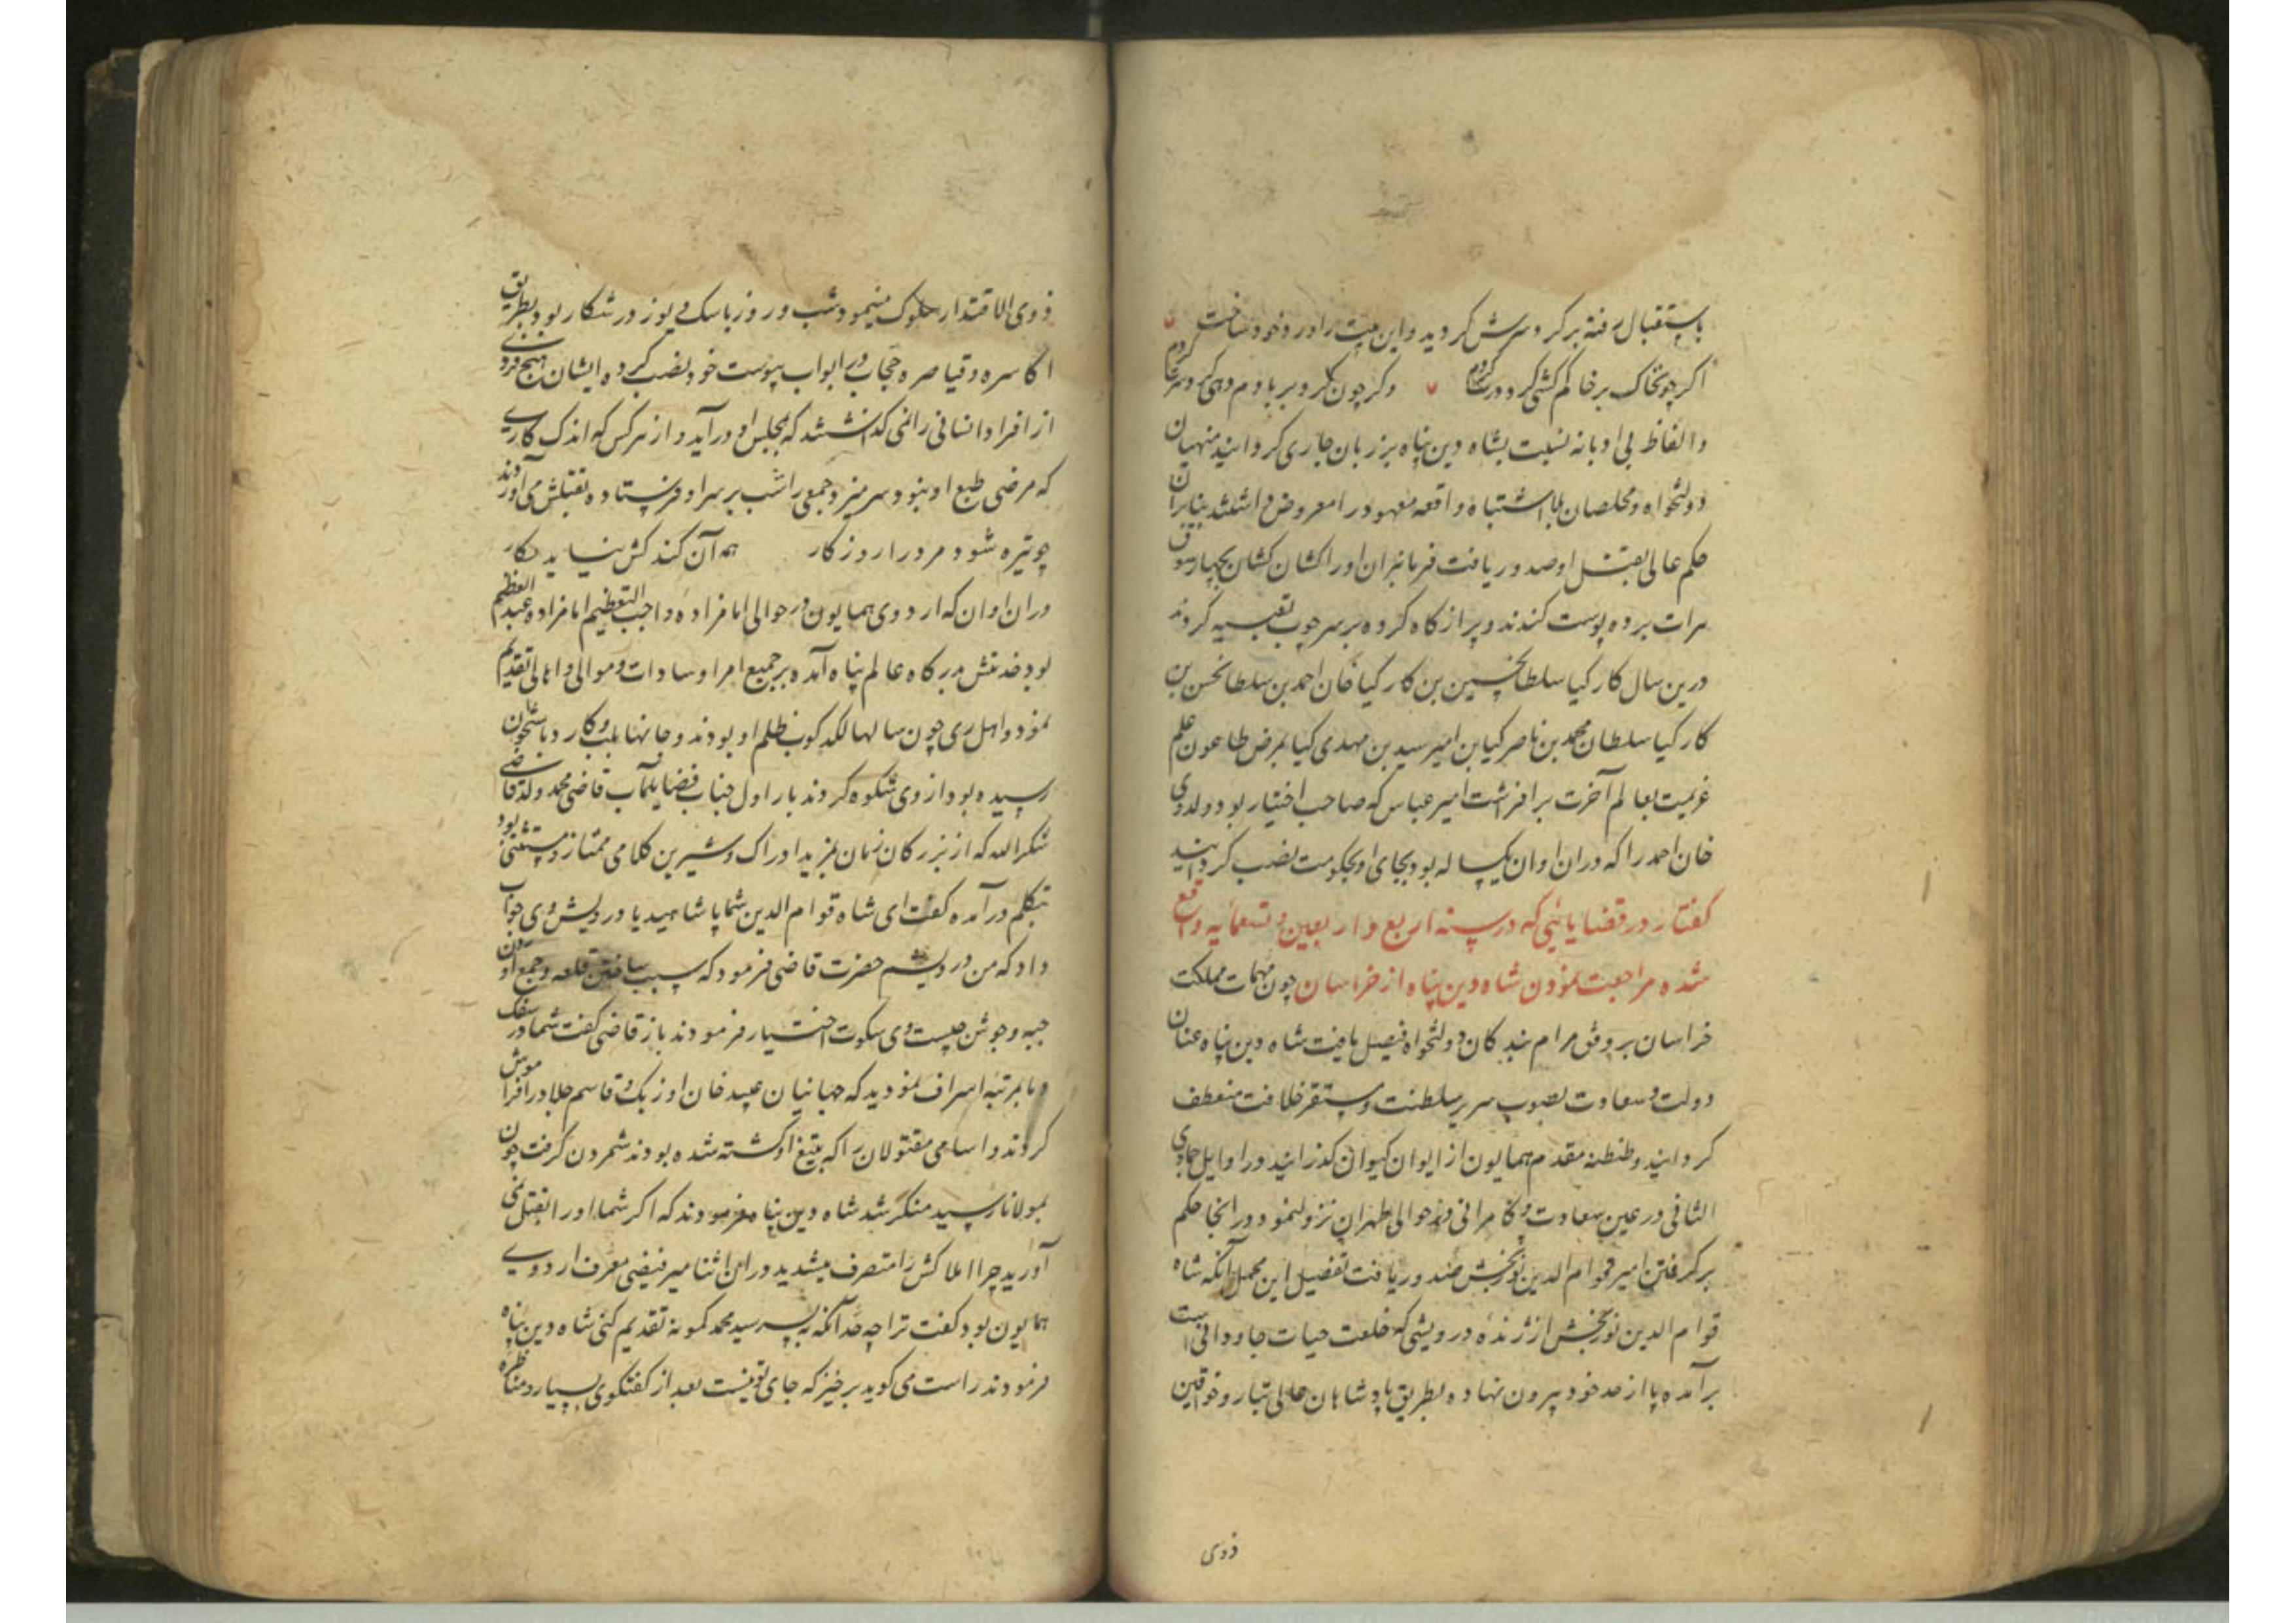 باستقبال رفته بر کرد سرش کردید و این بیت را ورد خود ساخت
اکر چو نخاک بر خاکم کشی کرد درت کردم وکر چون کرد بر بادم دهی کرد سرت کردم
والفاظ بی ادبانه نسبت بشاه دین پناه بر زبان جاری کردانید منهیان
دولتخواه ومخلصان بلا اشتباه واقعه معهود را معروض داشتند بنابران
حکم عالی بقتل او صدور یافت فرمانبران او را کشان کشان بچهار سوق
هرات برده پوست کندند و پر از کاه کرده بر سر چوب تعبیه کردند
درین سال کارکیا سلطان حسین بن کارکیا خان احمد بن سلطان حسن بن
کارکیا سلطان محمد بن ناصر کیا بن امیر سید بن مهدی کیا بمرض طاعون علم
عزیمت بعالم آخرت بر افراشت امیر عباس که صاحب اختیار بود ولد وی
خان احمد را که دران اوان یکساله بود بجای او بحکومت نصب کردانید
کفتار در قضایایی که در سنه اربع و اربعین و تسعمایه واقع
شده مراجعت نمودن شاه دین پناه از خراسان چون مهمات مملکت
خراسان بر وفق مرام بندکان دولتخواه فیصل یافت شاه دین پناه عنان
دولت و سعادت بصوب سریر سلطنت و مستقر خلافت منعطف
کردانید و طنطنه مقدم همایون از ایوان کیوان کذرانید و در اوایل جمادی
الثانی در عین سعادت و کامرانی در حوالی طهران نزول نمود و در انجا حکم
بر کرفتن امیر قوام الدین نوربخش صدور یافت تفصیل این مجمل آنکه شاه
قوام الدین نوربخش از ژنده درویشی که خلعت حیات جاودانی است
برآمده پا از حد خود بیرون نهاده بطریق پادشاهان عالی تبار و خواقین
ذوی
ذوی الاقتدار سلوک مینمود شب و روز با سک و یوز در شکار بود بطریق
اکاسره و قیاصره حجاب در ابواب بیوت خود نصب کرده ایشان هیچ فردی
از افراد انسانی را نمی کذاشتند که بمجلس او درآید و از هر کس که اندک کاری
که مرضی طبع او نبود سر میزد جمعی را شب بر سر او فرستاده بقتلش می آوردند
چو تیره شود مرد را روز کار همه آن کند کش نیاید بکار
دران اوان که اردوی همایون در حوالی امامزاده واجب التعظیم امامزاده عبدالعظیم
بود خدمتش بدرکاه عالم پناه آمده بر جمیع امرا و سادات و موالی و اهالی تقدیم
نمود و اهل ری چون سالها لکدکوب ظلم او بودند و جانها بلب و کارد باستخوان
رسیده بود از وی شکوه کردند بار اول جناب فضایلمآب قاضی محمد ولد قاضی
شکرالله که از بزرکان زمان بمزید ادراک و شیرین کلامی ممتاز و مستثنی بود
بتکلم درآمده کفت ای شاه قوام الدین شما پادشاهید یا درویش وی جواب
داد که من درویشم حضرت قاضی فرمود که سبب ساختن قلعه و جمع آوردن
جبه و جوشن چیست وی سکوت اختیار فرمودند باز قاضی کفت شما در سفک
دما بمرتبه اسراف نمودید که جهانیان عبید خان اوزبک و قاسم جلاد را فراموش
کردند و اسامی مقتولان را که بتیغ او کشته شده بودند شمردن کرفت چون
بمولانا رسید منکر شد شاه دین پناه فرمودند که اکر شما او را بقتل نمی
آورید چرا املاکش را متصرف میشدید دران اثنا میر فیضی معرف اردوی
همایون بود کفت ترا چه حد آنکه به پسر سید محمد کمونه تقدیم کنی شاه دین پناه
فرمودند راست می کوید برخیز که جای تو نیست بعد از کفتکوی بسیار و مناظره